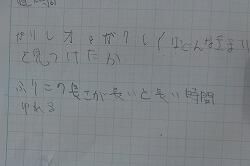 ガリレオ・ガリレイはどんな
で見つけたか
ふりこの長さが長いと長い時間
ゆれる